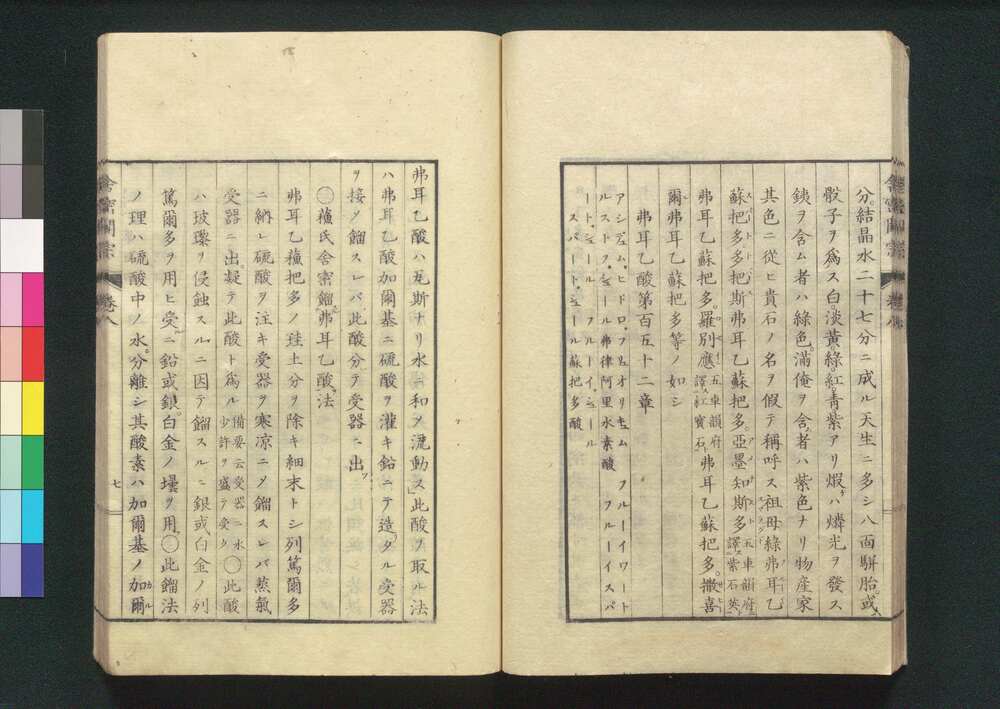 分。結晶水二十七分ニ成ル天生ニ多シ八面駢胎。或ハ
骰子ヲ為ス白淡黄緑紅青紫アリ煆ハ燐光ヲ發ス
銕ヲ含ム者ハ緑色。滿俺ヲ含者ハ紫色ナリ物産家
其色ニ從ヒ貴石ノ名ヲ假テ稱呼ス祖母緑弗耳乙
蘇把多。多把斯弗耳乙蘇把多。亞墨知斯多 五車韻府譯紫石英
弗耳乙蘇把多。羅別應 五車韻府譯紅寶石 弗耳乙蘇把多。撒喜
爾弗耳乙蘇把多等ノ如シ
弗耳乙酸第百五十二章
アシデュム。ヒドロ。フリュオリキュム フルーイワート
ルストフ。シュール 弗律阿里水素酸 フルーイスパ
ート。シュール フルーイ。シュール
スパート。シュール 蘇把多酸
弗耳乙酸ハ瓦斯ナリ水ニ和メ流動ス此酸ヲ取ル法
ハ弗耳乙酸加爾基ニ硫酸ヲ灌キ鉛ニテ造タル受器
ヲ接ケ餾スレバ此酸分テ受器ニ出ツ
〇穬氏舍密餾弗耳乙酸法
弗耳乙穬把多ノ珪土分ヲ除キ細末トシ列篤爾多
ニ納レ硫酸ヲ注キ受器ヲ寒凉ニメ餾スレバ蒸氣
受器ニ出凝テ此酸ト為ル 備要云受器ニ水少許ヲ盛テ受ク 〇此酸
ハ玻瓈ヲ侵蝕スルニ因テ餾スルニ銀或白金ノ列
篤爾多ヲ用ヒ受ニ鉛或銀。白金ノ壜ヲ用。〇此餾法
ノ理ハ硫酸中ノ水。分離シ其酸素ハ加爾基ノ加爾
舍密開宗 卷八 七